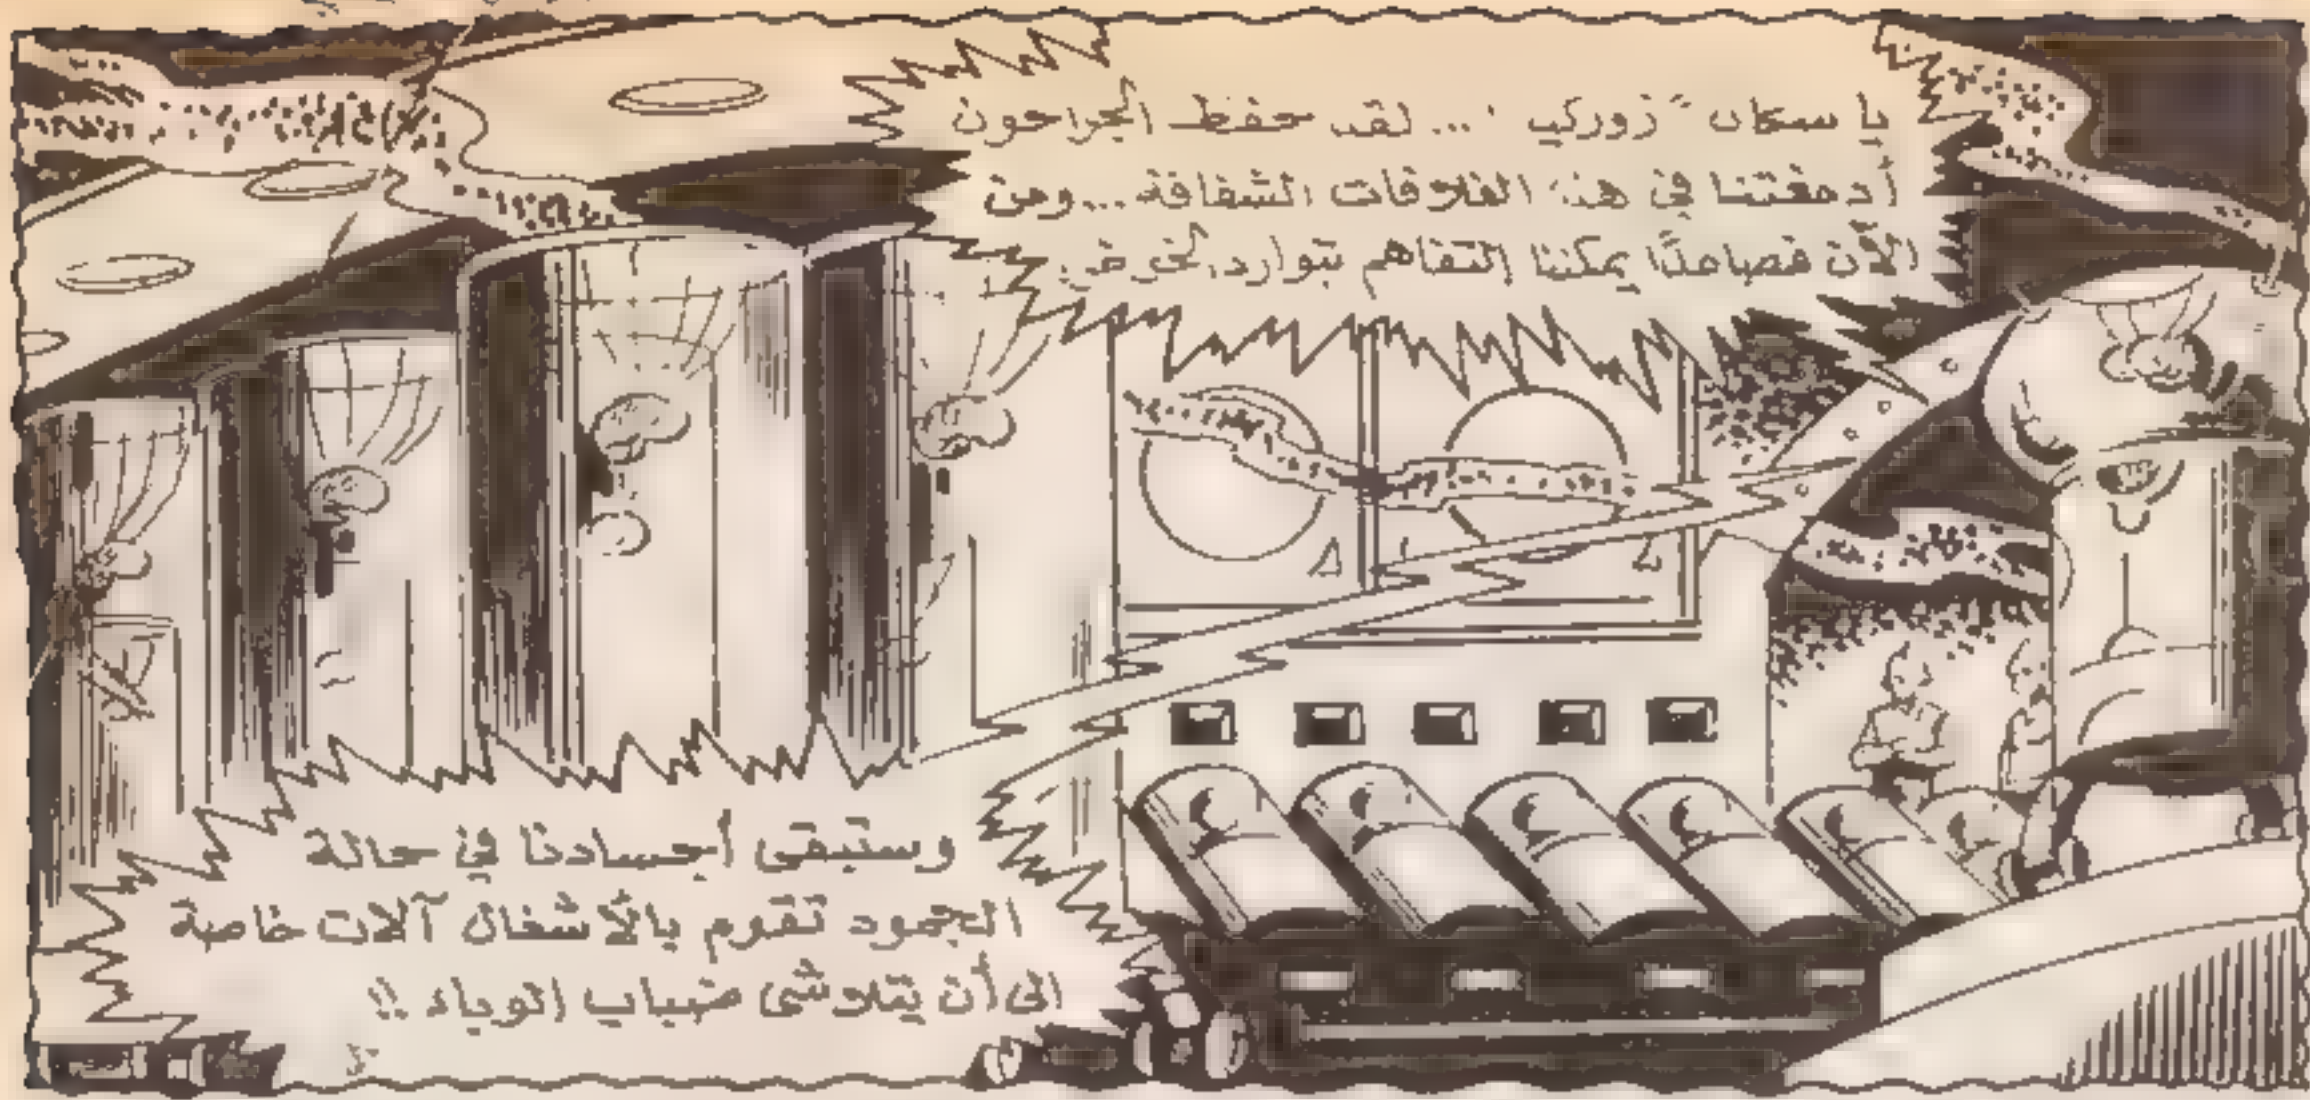 يا سكان "زوركي" ... لقد حفظ الجراحون
أدمغتنا في هذه الغلافات الشفافة... ومن
الآن فصاعدًا يمكننا التفاهم بتوارد الخواطر
وستبقى أجسادنا في حالة
الجمود تقوم بالأشغال آلات خاصة
الى أن يتلاشى ضباب الوباء !!